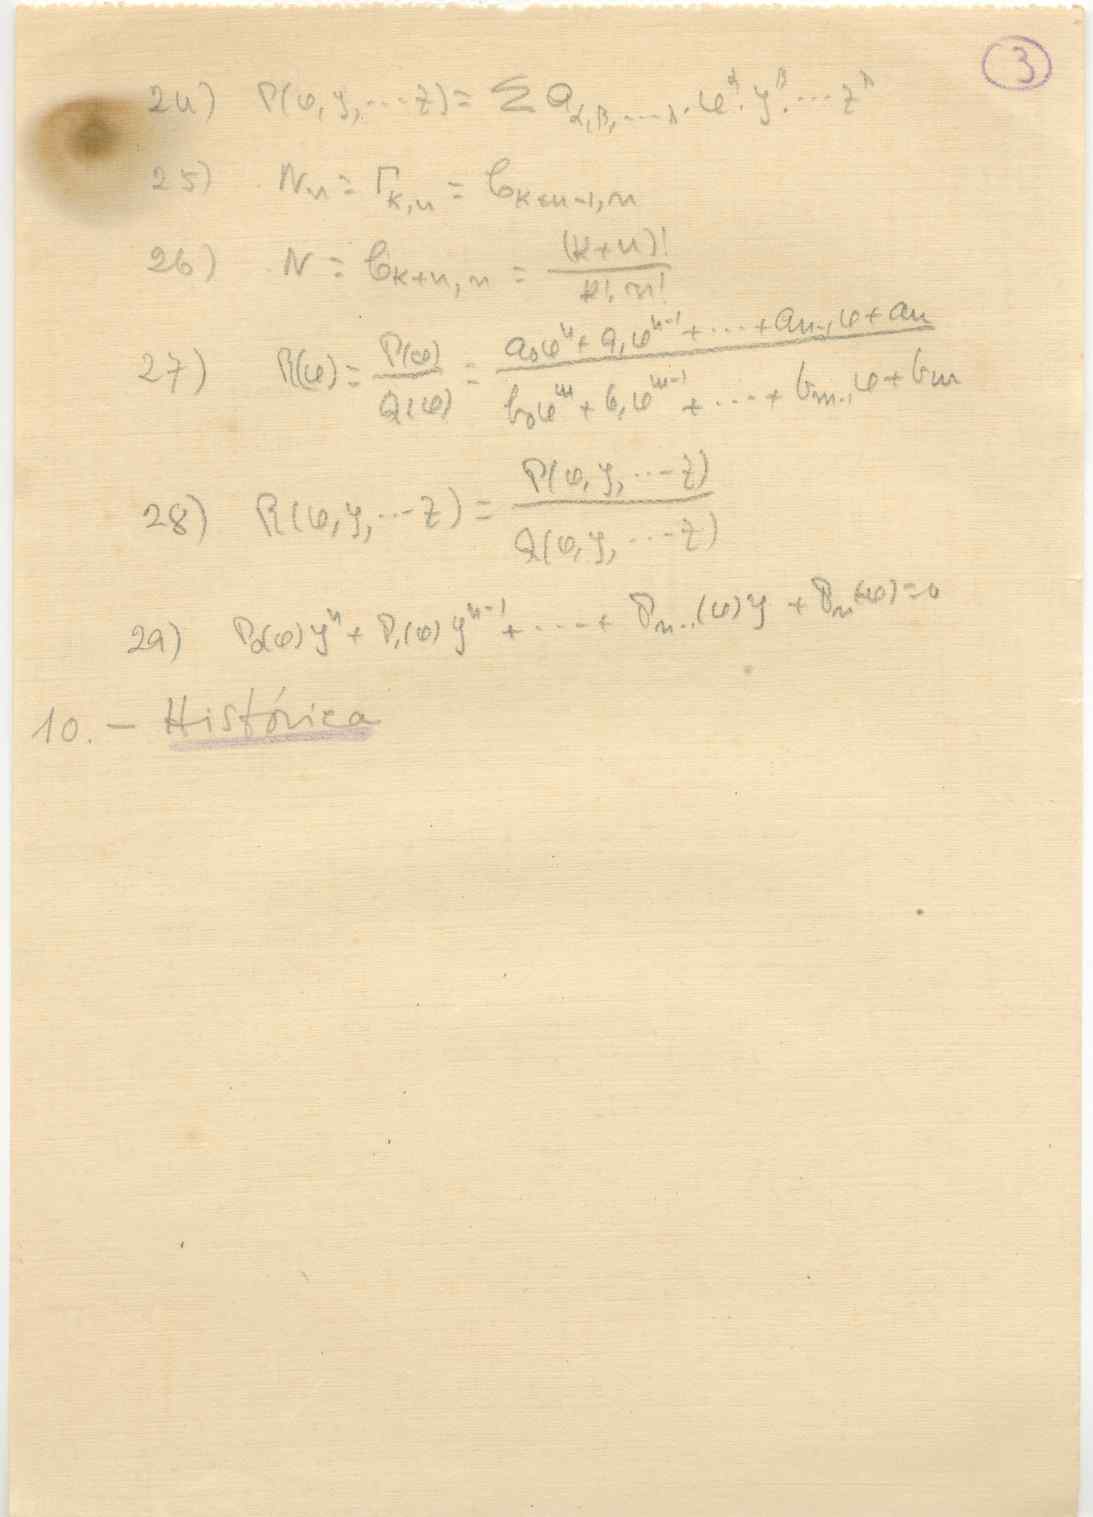 3
24) P(x, y, ... z) = Σ a_{α, β, ... λ} . x^α . y^β . ... z^λ
25) N_n = Γ_{k,n} = C_{k+n-1, n}
26) N = C_{k+n, n} = (k+n)! / k! n!
27) R(x) = P(x) / Q(x) = a_0x^n + a_1x^{n-1} + ... + a_{n-1}x + a_n / b_0x^m + b_1x^{m-1} + ... + b_{m-1}x + b_m
28) R(x, y, ... z) = P(x, y, ... z) / Q(x, y, ... z)
29) P_0(x)y^n + P_1(x)y^{n-1} + ... + P_{n-1}(x)y + P_n(x) = 0
10. - Histórica